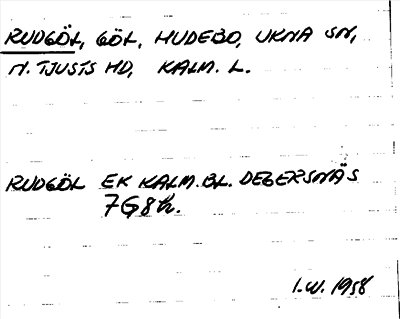 RUDGÖL, GÖL, HUDEBO, UKNA SN,
N. TJUSTS HD, KALM. L.
RUDGÖL EK KALM. BL. DEGERSNÄS
7G8h.
I.W. 1958